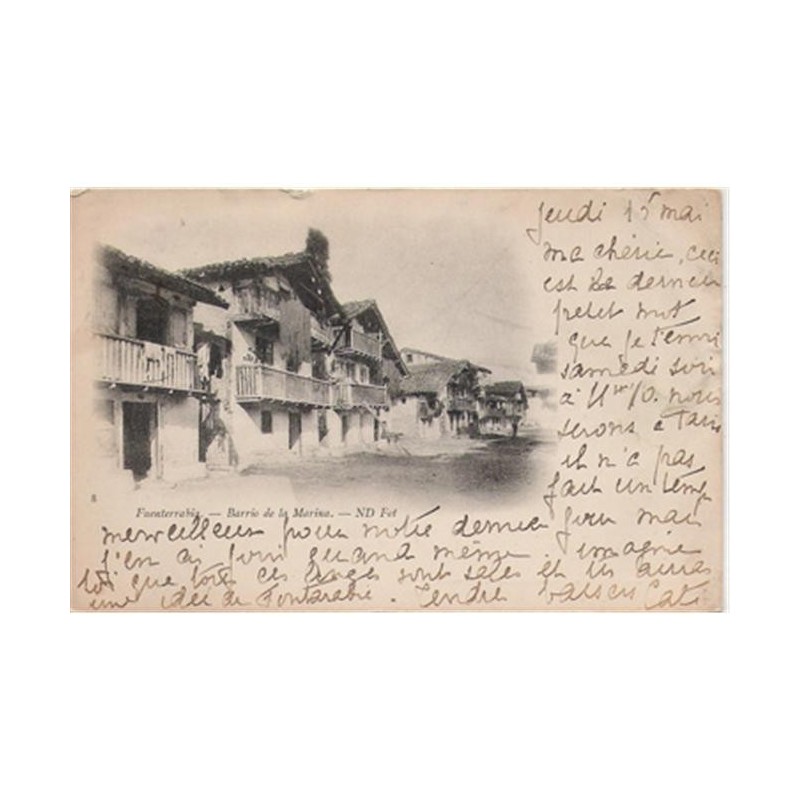 Jeudi 15 mai
ma chérie, ceci
est le dernier
petit mot
que je t'envoi
samedi soir
à 11hr 10. nous
serons à Paris
il n'a pas
fait un temps
Fuenterrabia. — Barrio de la Marina. — ND Fot
merveilleux pour notre dernier jour mais
j'en ai joui quand même. imagine
toi que tous ces linges sont sales et tu auras
une idée de Fontarabie. Tendre baisers Cat
8